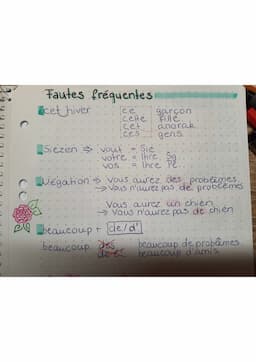 Fautes fréquentes
cet hiver
ce garçon
cette fille
cet anorak
ces gens
Siezen ⇒ vous = Sie
votre = Ihre Sg
vos = Ihre Pl
Négation → Vous aurez des problèmes
→ Vous n'aurez pas de problèmes
Vous aurez un chien
→ Vous n'aurez pas de chien
beaucoup + de/d'
beaucoup des beaucoup de problèmes
beaucoup d'amis